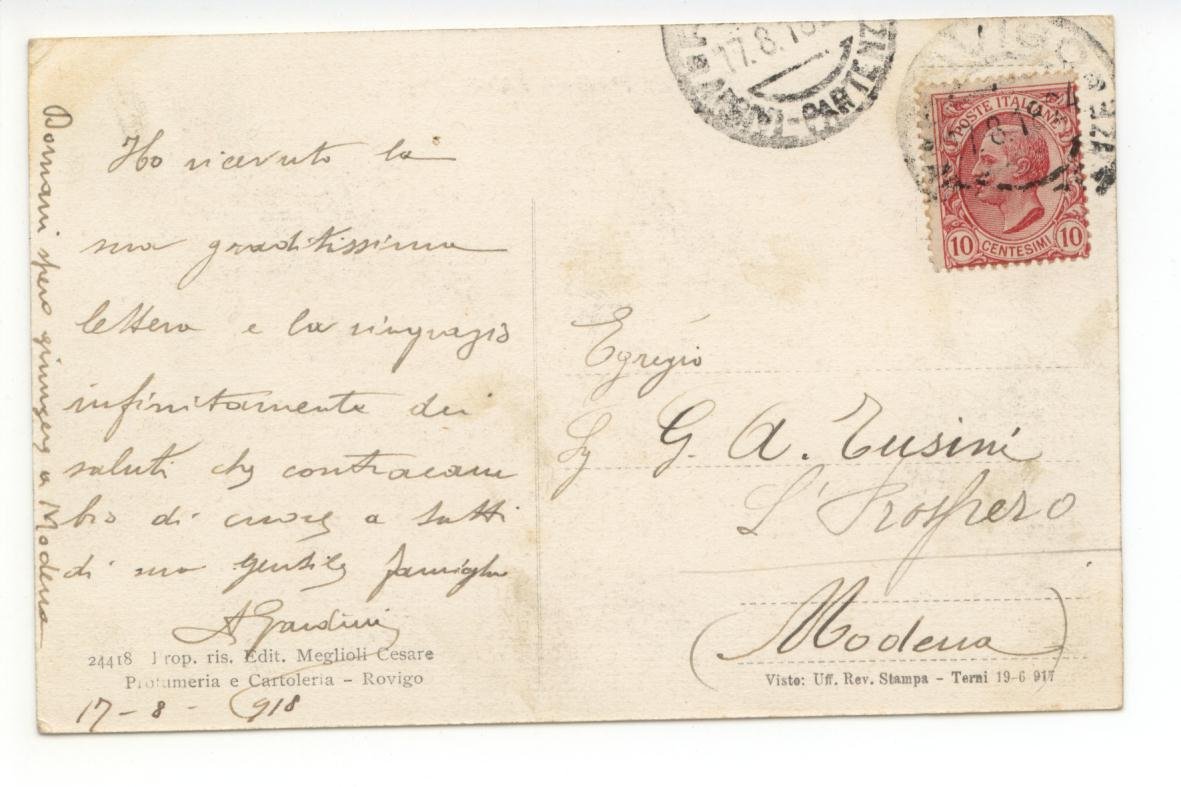 Ho ricevuto la
sua graditissima
lettera e la ringrazio
infinitamente dei
saluti che contracam
bio di cuore a tutti
di sua gentile famiglia
AGardini
Domani spero giungere a Modena
24418 Prop. ris. Edit. Meglioli Cesare
Profumeria e Cartoleria - Rovigo
17-8-918
17.8.18
ARRIVI-PARTENZE
POSTE ITALIANE
10 CENTESIMI 10
Egregio
Sg G. A. Tusini
S. Prospero
(Modena)
Visto: Uff. Rev. Stampa - Terni 19-6 917